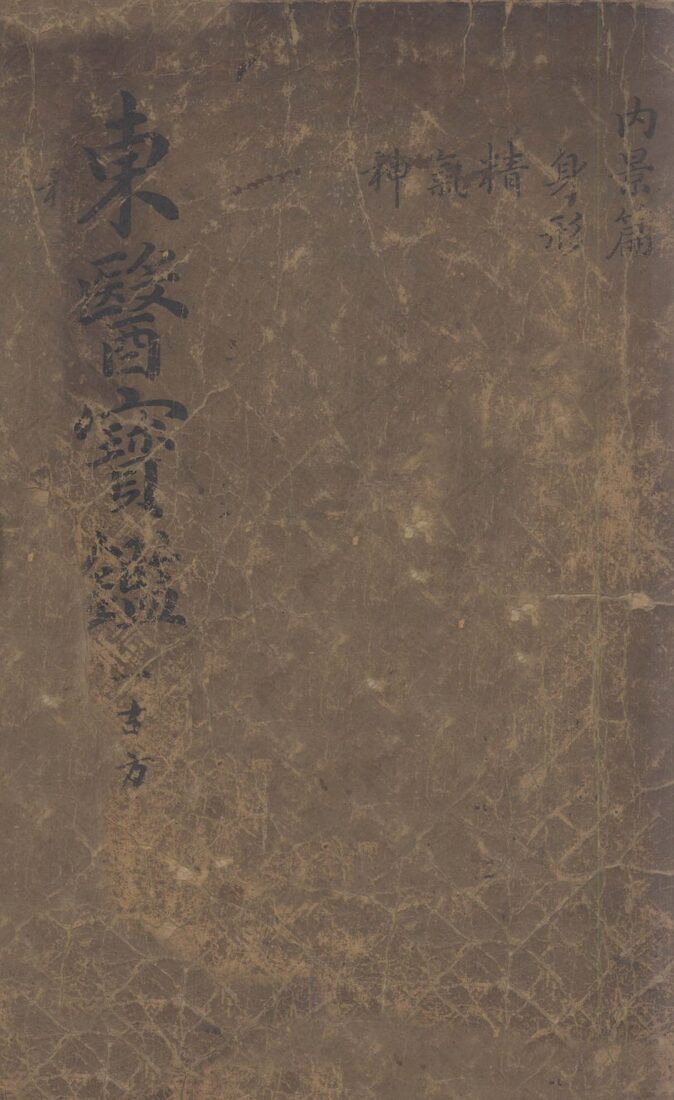 内景篇
身形
精
氣
神
東醫寶鑑
古方